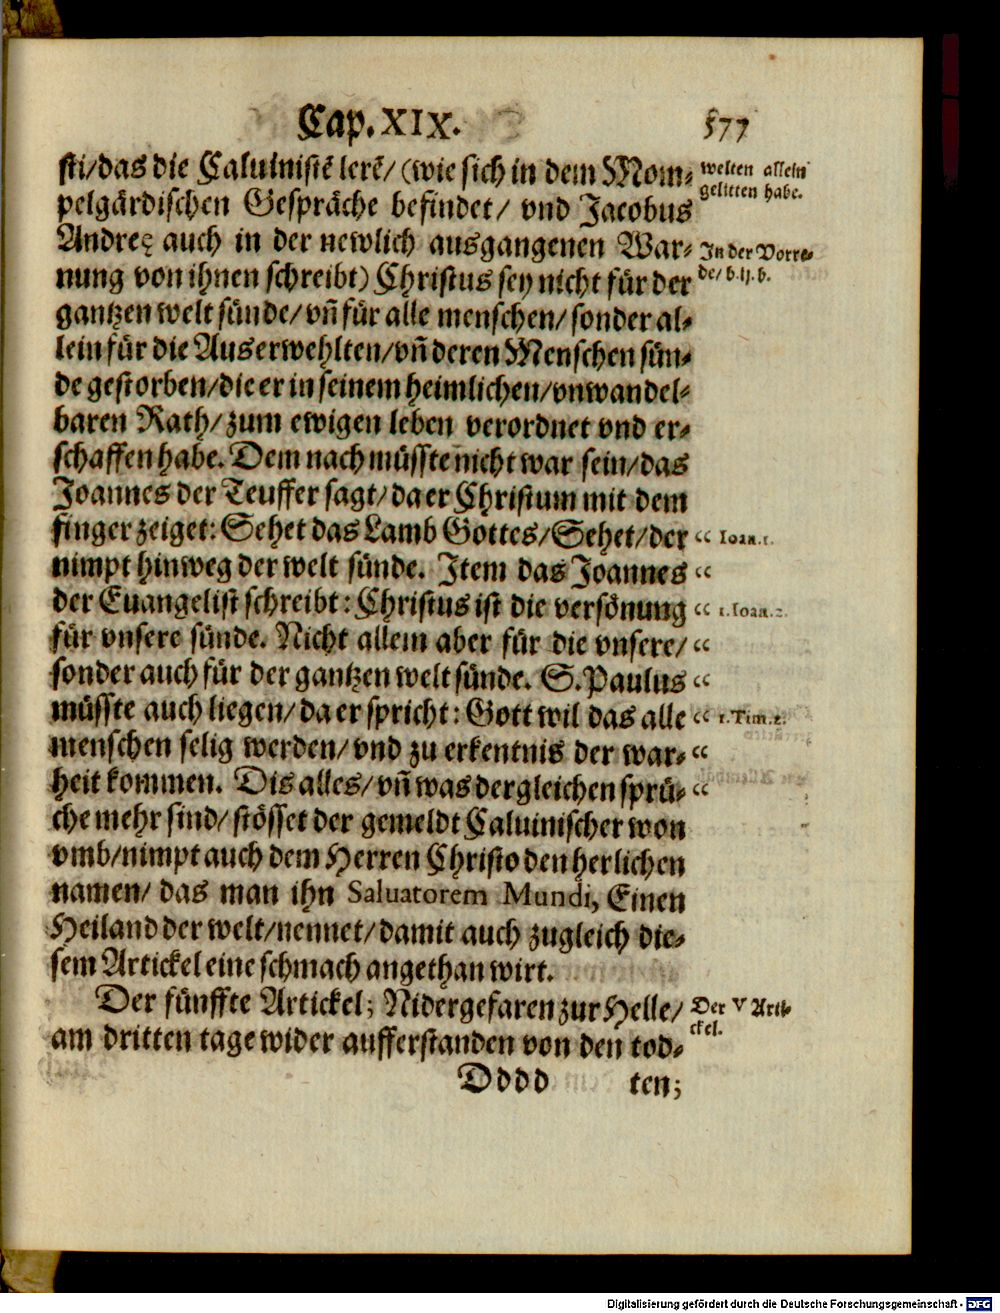 Cap. XIX. 577
sti/das die Caluinistẽ lerẽ/ (wie sich in dem Mom-
pelgärdischen Gespräche befindet/ vnd Jacobus
Andreę auch in der newlich ausgangenen War-
nung von ihnen schreibt) Christus sey nicht für der
gantzen welt sünde/ vñ für alle menschen/ sonder al-
lein für die Auserwehlten/ vñ deren Menschen sün-
de gestorben/ die er in seinem heimlichen/ vnwandel-
baren Rath/ zum ewigen leben verordnet vnd er-
schaffen habe. Dem nach müsste nicht war sein/ das
Joannes der Teuffer sagt/ da er Christum mit dem
finger zeiget: Sehet das Lamb Gottes/ Sehet/ der
nimpt hinweg der welt sünde. Item das Joannes
der Euangelist schreibt: Christus ist die versönung
für vnsere sünde. Nicht allein aber für die vnsere/
sonder auch für der gantzen welt sünde. S. Paulus
müsste auch liegen/ da er spricht: Gott wil das alle
menschen selig werden/ vnd zu erkentnis der war-
heit kommen. Dis alles/ vñ was dergleichen sprü-
che mehr sind/ stösset der gemeldt Caluinischer won
vmb/ nimpt auch dem Herren Christo den herlichen
namen/ das man ihn Saluatorem Mundi, Einen
Heiland der welt/ nennet/ damit auch zugleich die-
sem Artickel eine schmach angethan wirt.
Der fünffte Artickel; Nidergefaren zur Helle/
am dritten tage wider aufferstanden von den tod-
Dddd ten;
welten allein
gelitten habe.
In der Vorre-
de/ b. ij. b.
“ Ioan. 1.
“
“ 1. Ioan. 2.
“
“
“ 1. Tim. 2.
“
“
Der V Arti-
ckel.
Digitalisierung gefördert durch die Deutsche Forschungsgemeinschaft - DFG